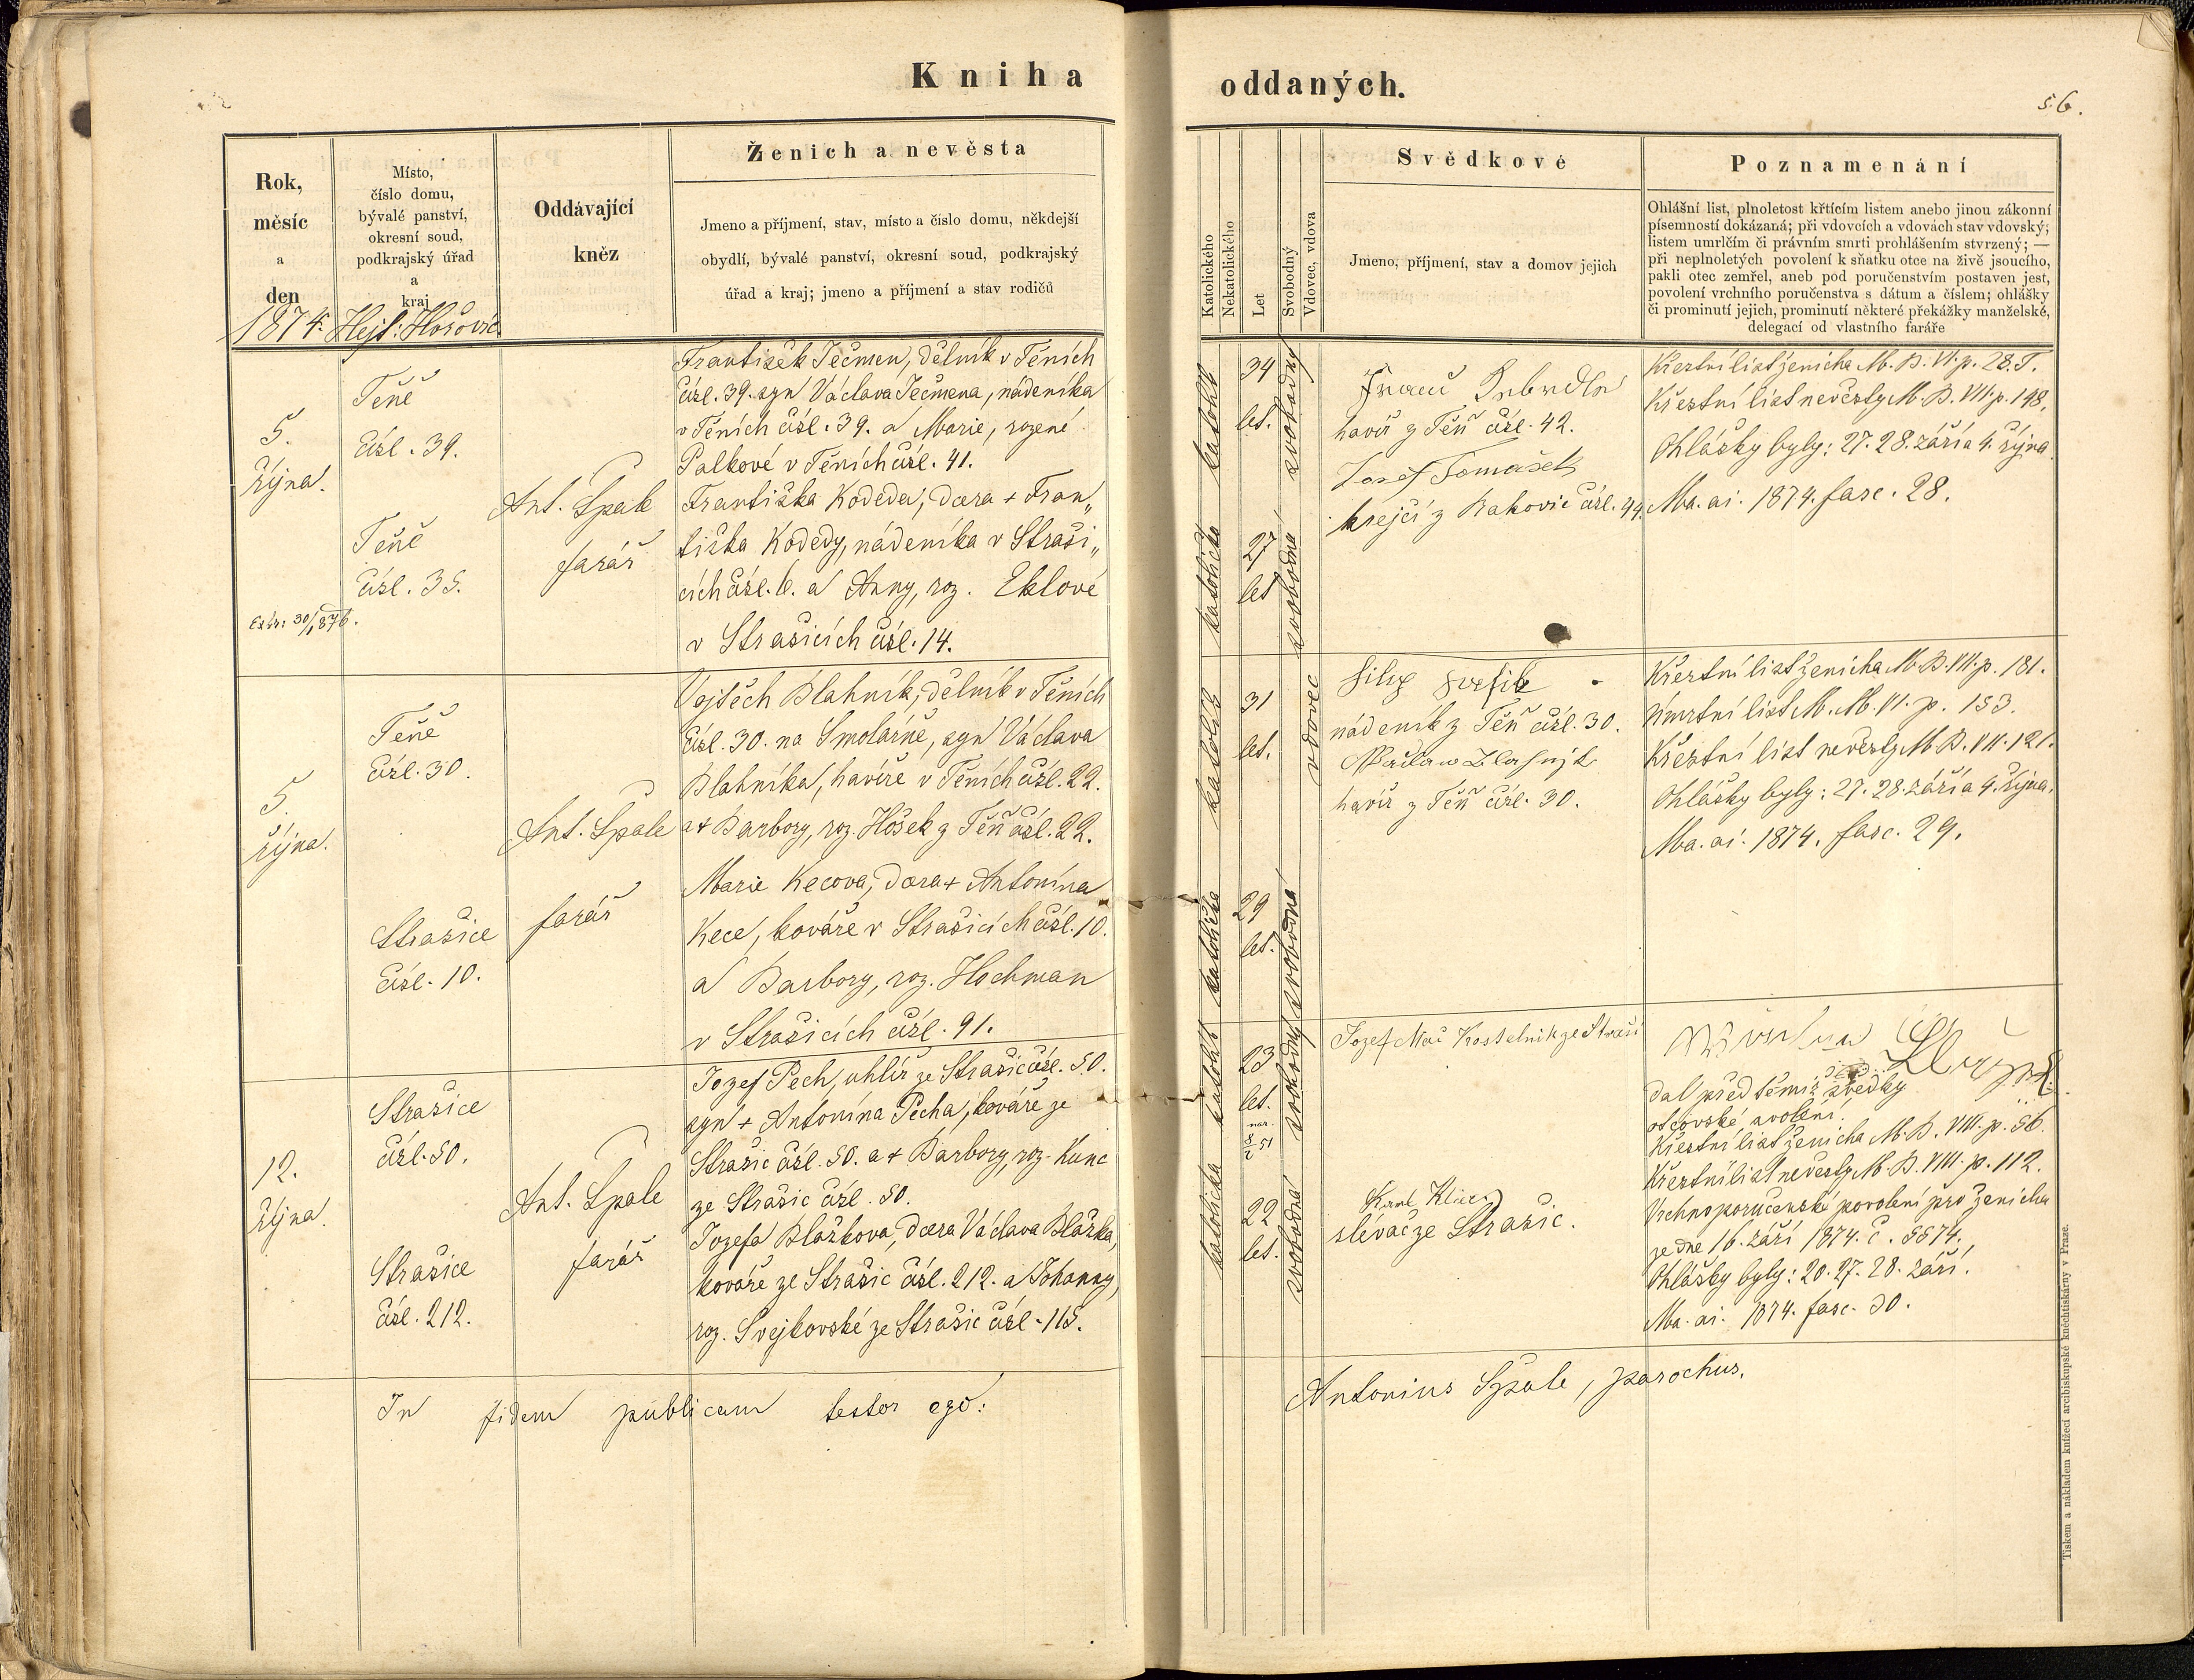 Kniha
oddaných.
56.
Rok,
měsíc
a
den
1874.
Místo,
číslo domu,
bývalé panství,
okresní soud,
podkrajský úřad
a
kraj
Hejt: Hořovic
Oddávající
kněz
Ženich a nevěsta
Jmeno a příjmení, stav, místo a číslo domu, někdejší
obydlí, bývalé panství, okresní soud, podkrajský
úřad a kraj; jmeno a příjmení a stav rodičů
Katolického
Nekatolického
Let
Svobodný
Vdovec, vdova
Svědkové
Jmeno, příjmení, stav a domov jejich
Poznamenání
Ohlášní list, plnoletost křtícím listem anebo jinou zákonní
písemností dokázaná; při vdovcích a vdovách stav vdovský;
listem umrlčím či právním smrti prohlášením stvrzený; —
při neplnoletých povolení k sňatku otce na živě jsoucího,
pakli otec zemřel, aneb pod poručenstvím postaven jest,
povolení vrchního poručenstva s dátum a číslem; ohlášky
či prominutí jejich, prominutí některé překážky manželské,
delegací od vlastního faráře
5.
října.
Extr: 30/1 876.
Těně
čísl. 39.
Těně
čísl. 35.
Ant. Špale
farář
František Ječmen, dělník v Těních
čísl. 39. syn Václava Ječmena, nádeníka
v Těních čísl. 39. a Marie, rozené
Palkové v Těních čísl. 41.
Františka Kodeda, dcera + Fran„
tiška Kodedy, nádeníka v Straši„
cích čísl. 6. a Anny, roz. Eklové
v Strašicích čísl. 14.
katolík
katolička
34
let.
27
let
svobodný
svobodná
havíř z Těň čísl. 42.
Josef Tomášek
krejčí z Rakovic čísl. 44.
Křestní list ženicha M. B. VI. p. 28. T.
Křestní list nevěsty M. B. VII. p. 198.
Ohlášky byly: 27. 28. září a 4. října.
Ma. ai. 1874. fasc. 28.
5.
října.
Těně
čísl. 30.
Strašice
čísl. 10.
Ant. Špale
farář
Vojtěch Blahník, dělník v Těních
čísl. 30. na Smolárně, syn Václava
Blahníka, havíře v Těních čísl. 22.
a + Barbory, roz. Hošek z Těň čísl. 22.
Marie Kecova, dcera + Antonína
Kece, kováře v Strašicích čísl. 10.
a Barbory, roz. Hochman
v Strašicích čísl. 91.
katolík
katolička
31
let.
29
let.
vdovec
svobodná
nádeník z Těň čísl. 30.
havíř z Těň čísl. 30.
Křestní list ženicha M. B. VII. p. 181.
Úmrtní list M. M. VI. p. 153.
Křestní list nevěsty M. B. VII. 121.
Ohlášky byly: 27. 28. září a 4. října.
Ma. ai. 1874. fasc. 29.
12.
října.
Strašice
čísl. 50.
Strašice
čísl. 212.
Ant. Špale
farář
Jozef Pech, uhlíř ze Strašic čísl. 50.
syn + Antonína Pecha, kováře ze
Strašic čísl. 50. a + Barbory, roz. Kunc
ze Strašic čísl. 50.
Jozefa Blažkova, dcera Václava Blažka,
kováře ze Strašic čísl. 212. a Johanny,
roz. Svejkovské ze Strašic čísl. 115.
katolík
katolička
23
let.
nar.
8/2 51
22
let.
svobodný
svobodná
Jozef Kostelník ze Straši
Karl
slévač ze Strašic.
dal před těmiž svědky
otcovské svolení.
Křestní list ženicha M. B. VIII. p. 56.
Křestní list nevěsty M. B. VIII. p. 112.
Vrchnoporučenské povolení pro ženicha
ze dne 16. září 1874. č. 5574.
Ohlášky byly: 20. 27. 28. září.
Ma. ai. 1874. fasc. 30.
In fidem publicam testor ego:
Antonius Špale, parochus.
Tiskem a nákladem knížecí arcibiskupské kněhtiskárny v Praze.